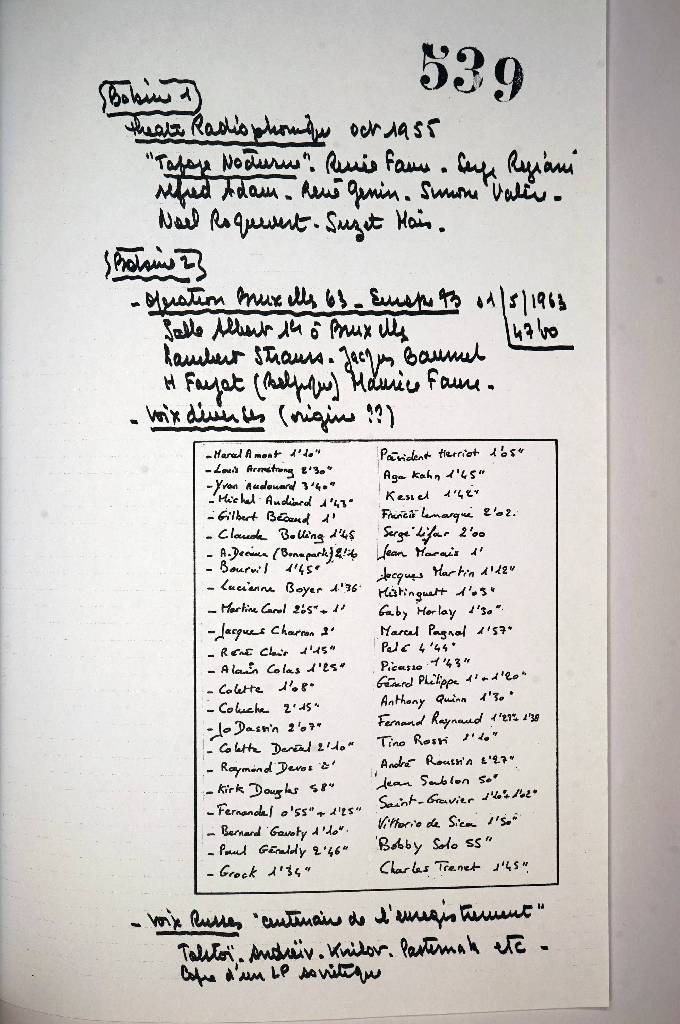 539
Bobine 1
Theatre Radiophonique oct 1955
"Tapage Nocturne". Renée Faure. Serge Reggiani
Alfred Adam. René Genin. Simone Valère.
Noel Roquevert. Suzet Maïs.
Bobine 2
- operation Bruxelles 63 - Europe 93 01/5/1963
47'00
Salle Albert 1er à Bruxelles
Rambert Strauss. Jacques Baumel
H Fayat (Belgique) Maurice Faure.
- Voix diverses (origine ??)
- Marcel Amont 1'10"
- Louis Armstrong 2'30"
- Yvan Audouard 3'40"
- Michel Audiard 1'43"
- Gilbert Bécaud 1'
- Claude Bolling 1'45
- A. Decaux (Bonaparte)
- Bourvil 1'45"
- Lucienne Boyer 1'36
- Martine Carol 2'05" + 1'
- Jacques Charron 2'
- René Clair 1'15"
- Alain Colas 1'25"
- Colette 1'08"
- Coluche 2'15"
- Jo Dassin 2'07"
- Colette Deréal 2'10"
- Raymond Devos 2'
- Kirk Douglas 58"
- Fernandel 0'55" + 1'25"
- Bernard Gavoty 1'10"
- Paul Géraldy 2'46"
- Grock 1'34"
Président Herriot 1'05"
Aga Kahn 1'45"
Kessel 1'42"
Francis Lemarque 2'02
Serge Lifar 2'00
Jean Marais 1'
Jacques Martin 1'12"
Mistinguett 1'03"
Gaby Morlay 1'30"
Marcel Pagnol 1'57"
Pelé 4'44"
Picasso 1'43"
Gérard Philippe 1' + 1'20"
Anthony Quinn 1'30"
Fernand Raynaud 1'27" 1'38
Tino Rossi 1'10"
André Roussin 2'27"
Jean Sablon 50"
Saint-Granier 1'10" 1'02"
Vittorio de Sica 1'50"
Bobby Solo 55"
Charles Trenet 1'45"
- Voix Russes "centenaire de l'enregistrement"
Tolstoï. Andreïv. Pasternak etc -
Copie d'un LP soviétique